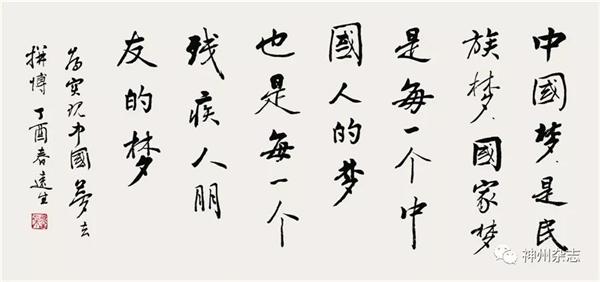 中國梦,是民
族梦,國家梦
是每一个中
國人的梦
也是每一个
残疾人朋
友的梦
为实现中國夢去
拼愽丁酉春远生
神州杂志